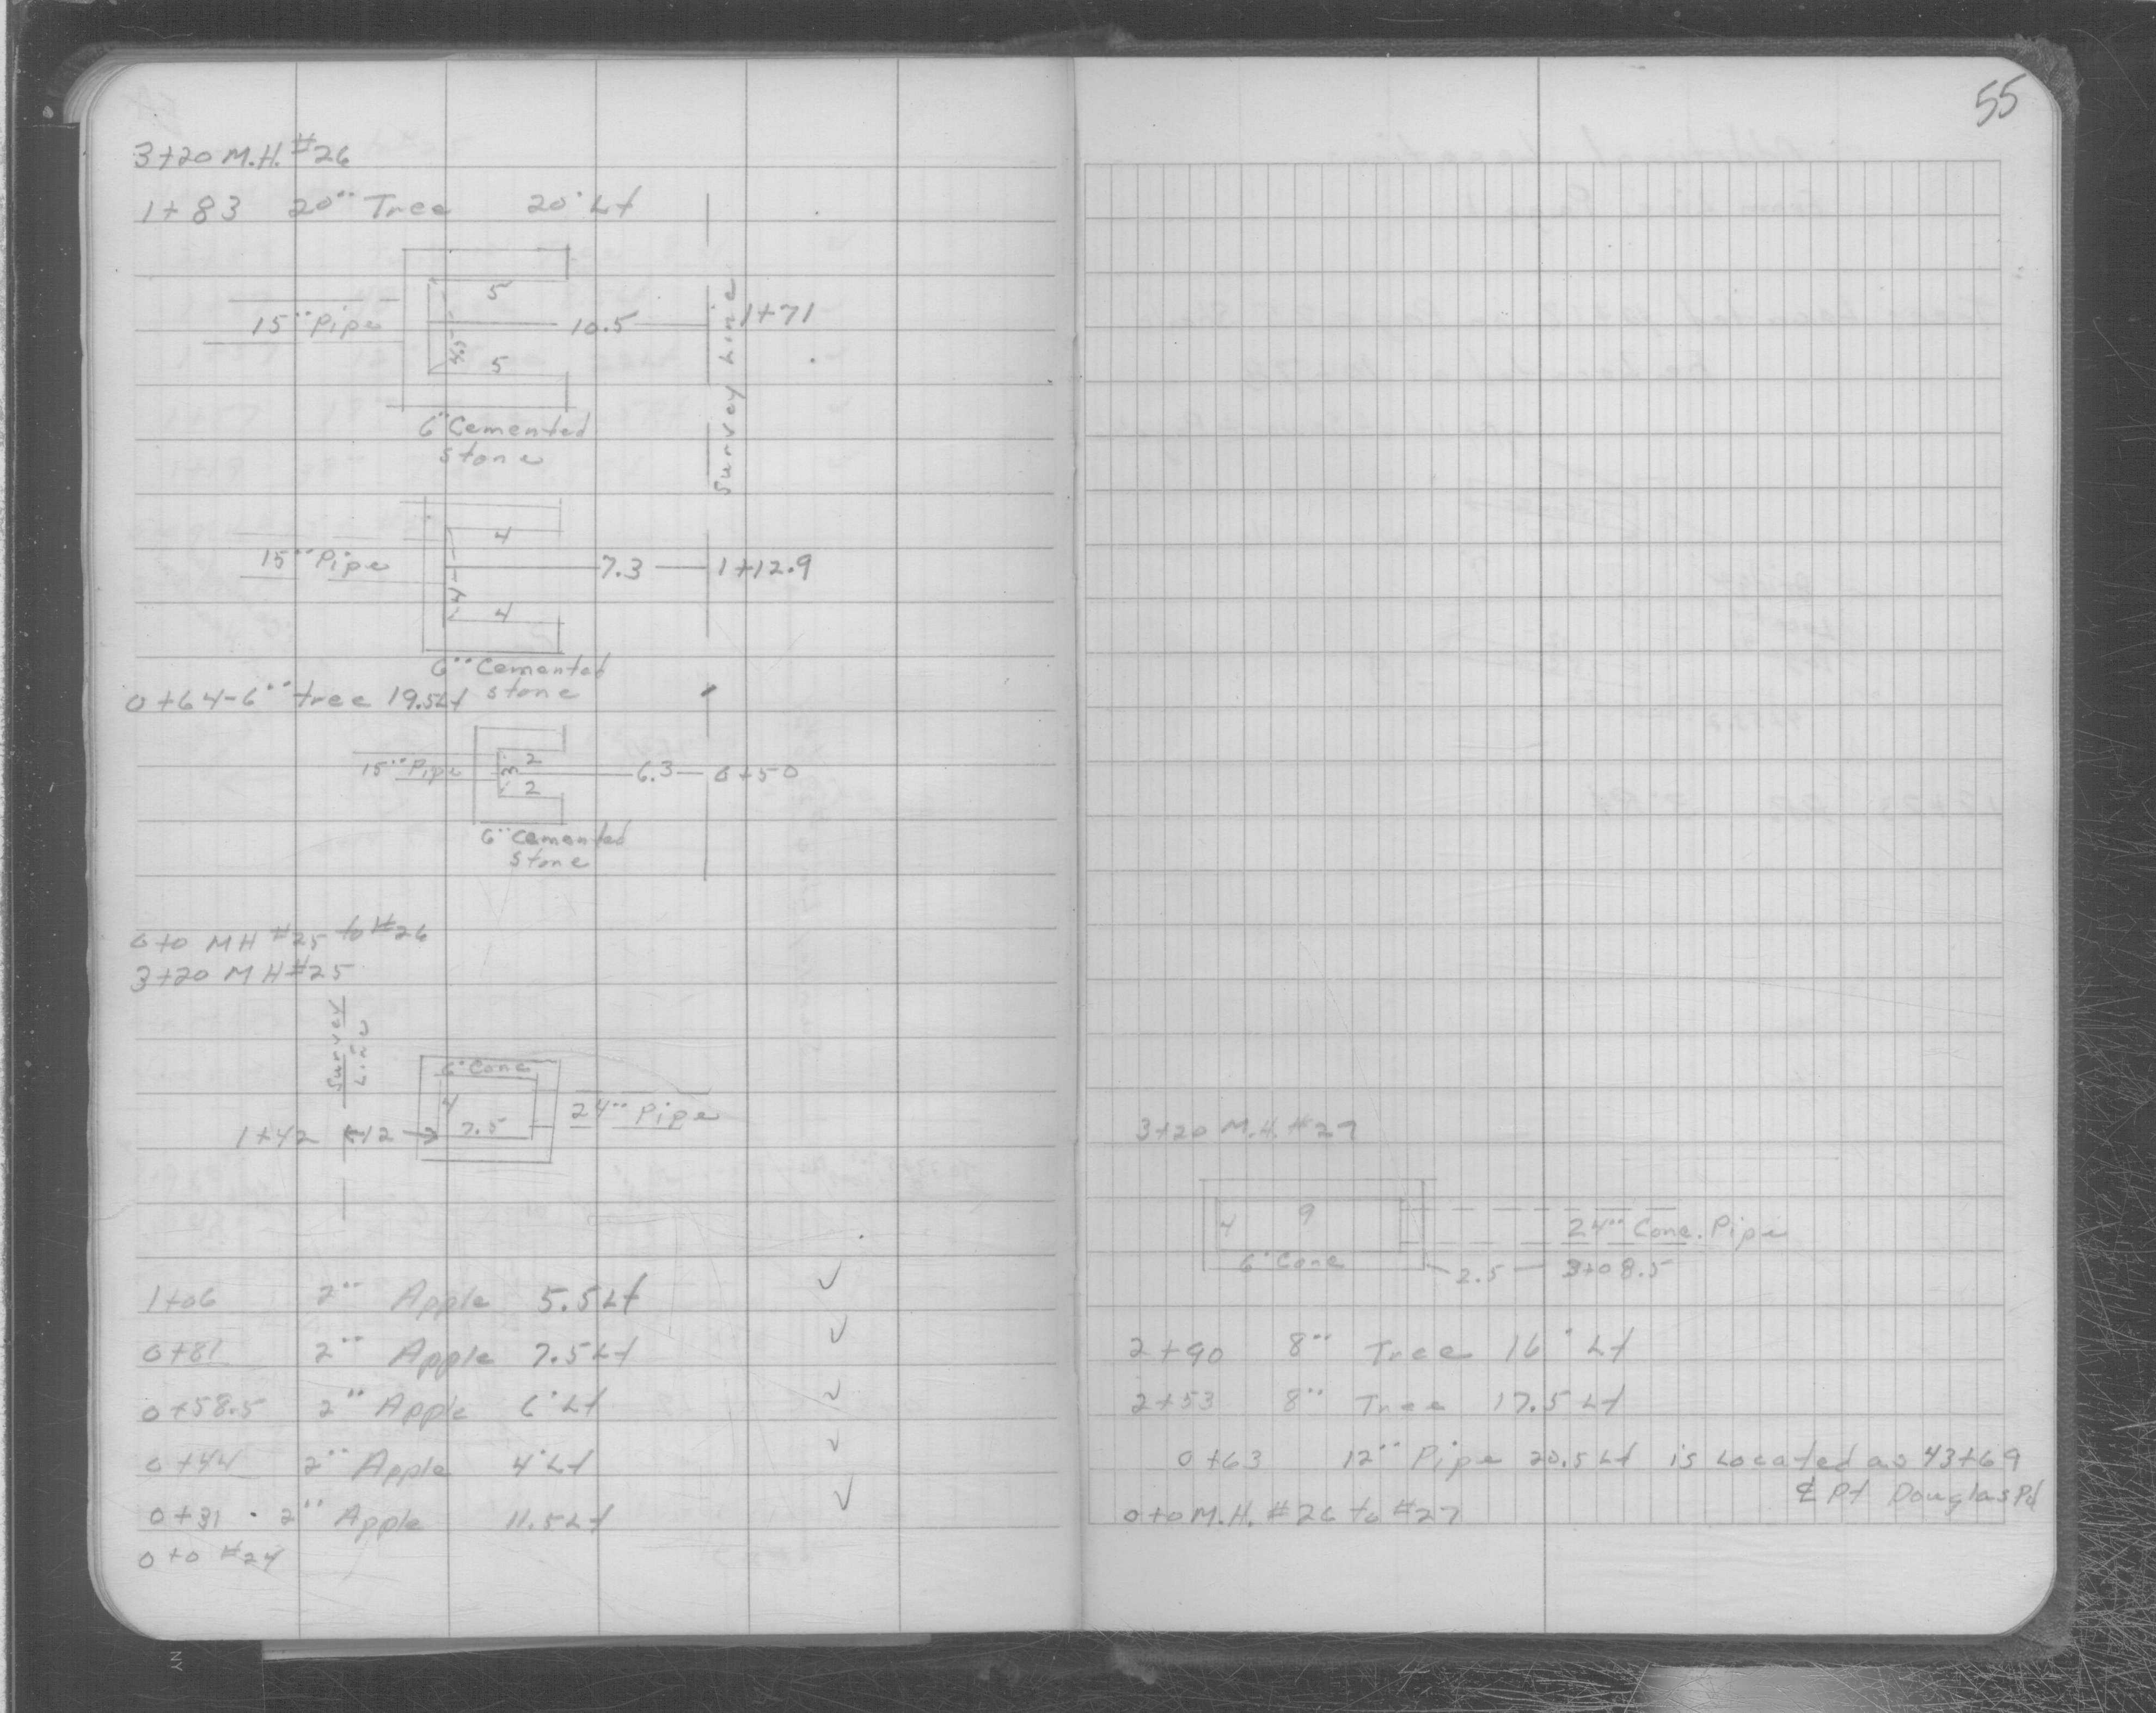 3+20 M.H. #26
1+83 20" Tree 20' Lt
5
15" Pipe
10.5
1+71
4.5
5
Survey Line
6" Cemented
stone
4
15" Pipe
7.3
1+12.9
4
4
6" Cemented
stone
0+64-6" tree 19.5Lt
2
15" Pipe
3
6.3
0+50
2
6" Cemented
stone
0+0 MH #25 to #26
3+20 MH #25
Survey
Line
6" Conc
4
7.5
24" Pipe
1+42
12
1+06 2" Apple 5.5Lt ✓
0+81 2" Apple 7.5Lt ✓
0+58.5 2" Apple 6' Lt ✓
0+44 2" Apple 4' Lt ✓
0+31 · 2" Apple 11.5Lt ✓
0+0 #24
55
3+20 M.H. #27
4
9
24" Conc. Pipe
6" Conc
2.5
3+08.5
2+90 8" Tree 16' Lt
2+53 8" Tree 17.5 Lt
0+63 12" Pipe 20.5 Lt is Located as 43+69
℄ Pt Douglas Rd
0+0 M.H. #26 to #27